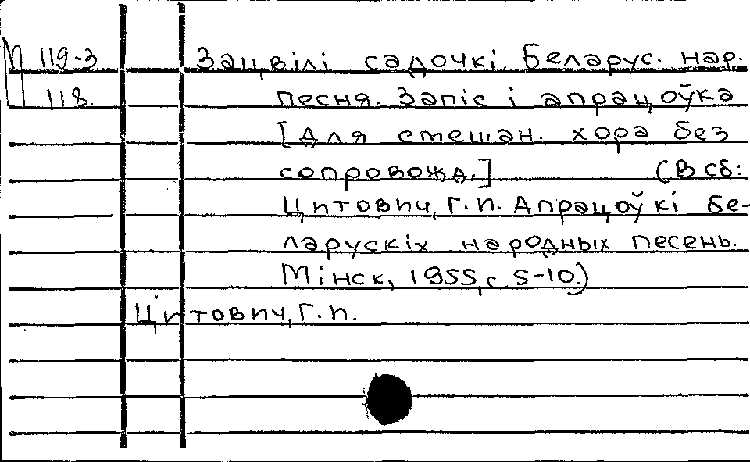 П 119-3 Зацвілі садочкі. Беларус. нар.
118. песня. Запіс і апрацоўка
[Для смешан. хора без
сопровожд.] (В сб:
Цитович, Г.И. Апрацоўкі бе-
ларускіх народных песень.
Мінск, 1955, с. 5-10.)
Цитович, Г.И.